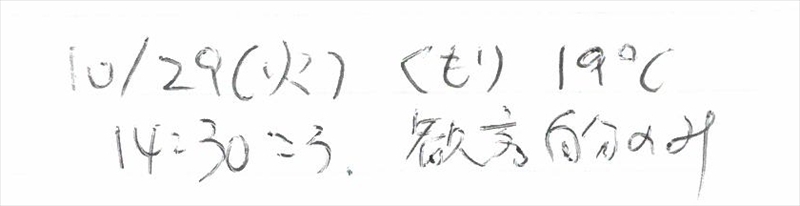 10/29(火) くもり 19℃
14:30ころ. 自分のみ